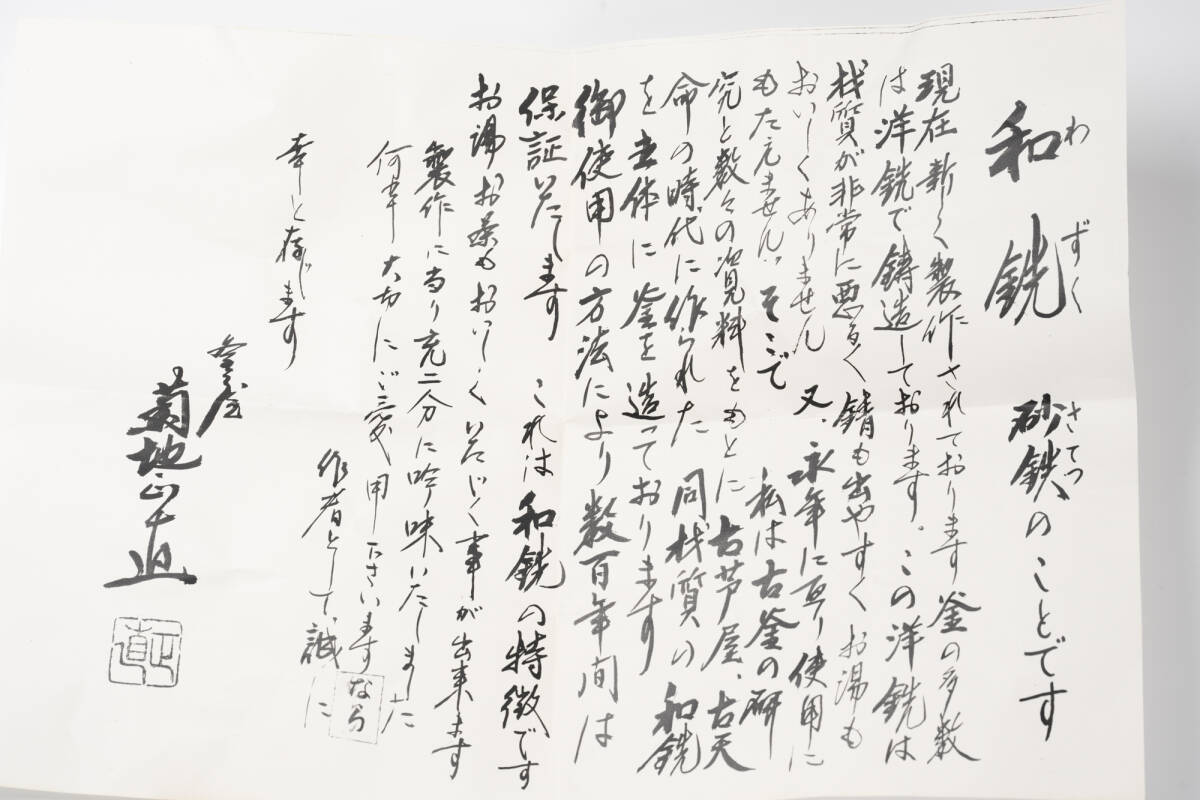 和銑 わずく 砂鉄のことです さてつ
現在新しく製作されております釜の多数
は洋銑で鋳造しております。この洋銑は
材質が非常に悪るく錆も出やすくお湯も
おいしくありません 又、永年に亘り使用に
もたえません、そこで 私は古釜の研
究と数々の資料をもとに古芦屋、古天
命の時代に作られた同材質の和銑
を主体に釜を造っております
御使用の方法により数百年間は
保証いたします これは和銑の特徴です
お湯お茶もおいしくいただく事が出来ます
製作に当り充二分に吟味いたしました
何卒大切にご愛用下さいますなら
作者として、誠に
幸と存じます
釜屋
菊地正直
正直